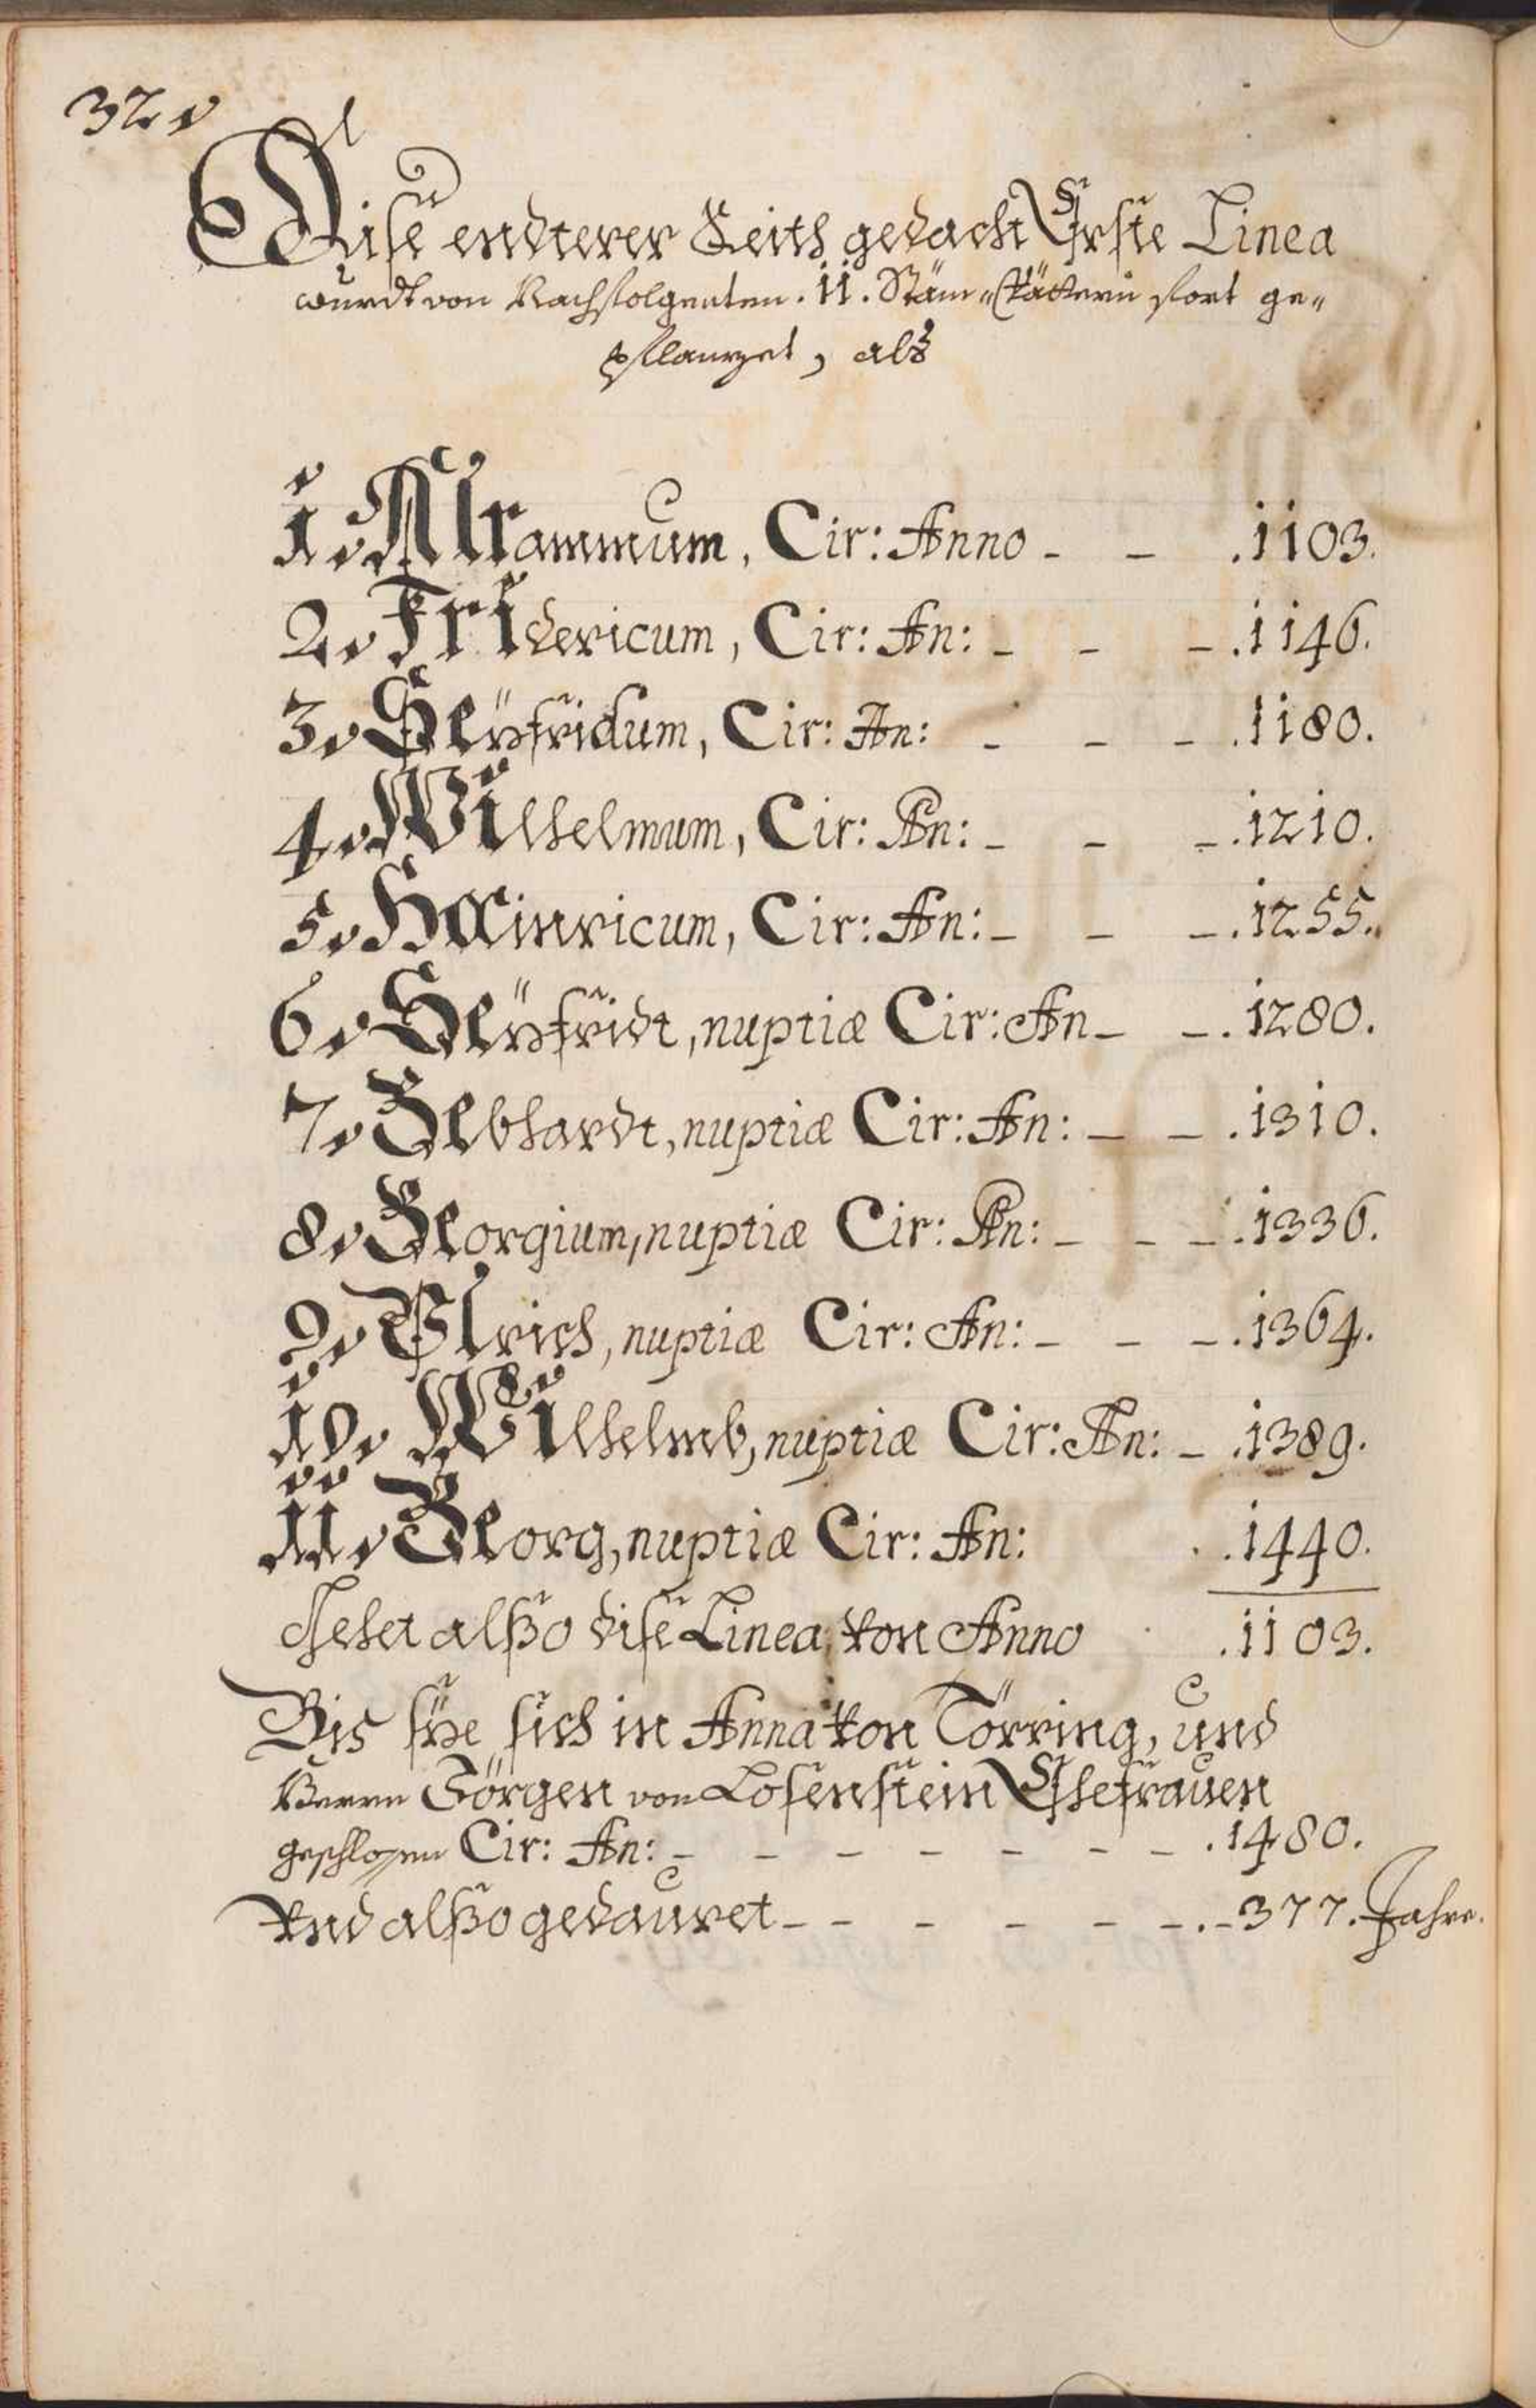 32.
Dise endterer Seits gedacht Erste Linea
wurdt von Nachfolgenten .11. Stam„Vättern fort ge„
pflanzet, alß
1. Alrammum, Cir: Anno - - .1103.
2. Fridericum, Cir: An: - - - .1146.
3. Seÿfridum, Cir: An: - - - .1180.
4. Wilhelmum, Cir: An: - - - .1210.
5. Hainricum, Cir: An: - - - .1255.
6. Seÿfridt, nuptiæ Cir: An - - . 1280.
7. Gebhardt, nuptiæ Cir: An: - - .1310.
8. Georgium, nuptiæ Cir: An: - - - .1336.
9. Ulrich, nuptiæ Cir: An: - - - .1364.
10. Wilhelmb, nuptiæ Cir: An: - .1389.
11. Georg, nuptiæ Cir: An: .1440.
Stehet alßo dise Linea von Anno .1103.
Bis sÿe sich in Anna von Törring, und
Herrn Görgen von Losenstein Ehefrauen
geschlossen Cir: An: - - - - - - - .1480.
Und alßo gedauret - - - - - - . - 377. Jahre.